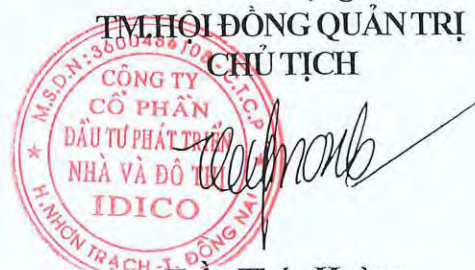 TM.HỘI ĐỒNG QUẢN TRỊ
CHỦ TỊCH
M.S.D.N:3600486
C.T.C.P
CÔNG TY
CỔ PHẦN
ĐẦU TƯ PHÁT TRIỂN
NHÀ VÀ ĐÔ THỊ
IDICO
H.NHƠN TRẠCH - T. ĐỒNG NAI